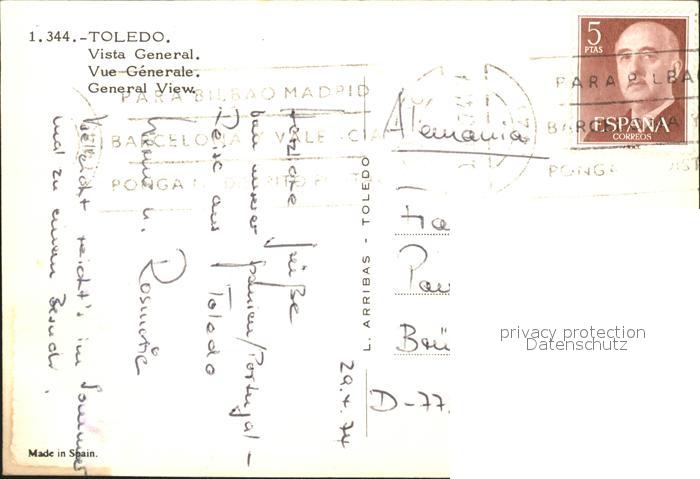 1.344.-TOLEDO.
Vista General.
Vue Génerale.
General View.
PARA BILBAO MADRID
BARCELONA VALENCIA
PONGA DISTRITO
5
PTAS
ESPAÑA
CORREOS
PARA BILBA
BARC
PONGA
Alemania
29.4.74
Herzliche Grüße
von unserer Spanien/Portugal-
Reise aus Toledo
u. Rosmarie
Vielleicht reicht's im Sommer
mal zu einem Besuch.
L. ARRIBAS - TOLEDO
D-77
privacy protection
Datenschutz
Made in Spain.